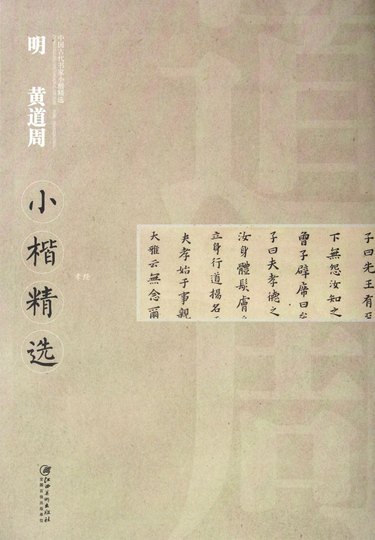 中国古代书家小楷精选
明 黄道周
小楷精选
孝经
子曰先王有至
下无怨汝知之
曾子辟席曰参
子曰夫孝德之
汝身體髮膚
立身行道揚名
夫孝始于事親
大雅云無念爾
江西美术出版社